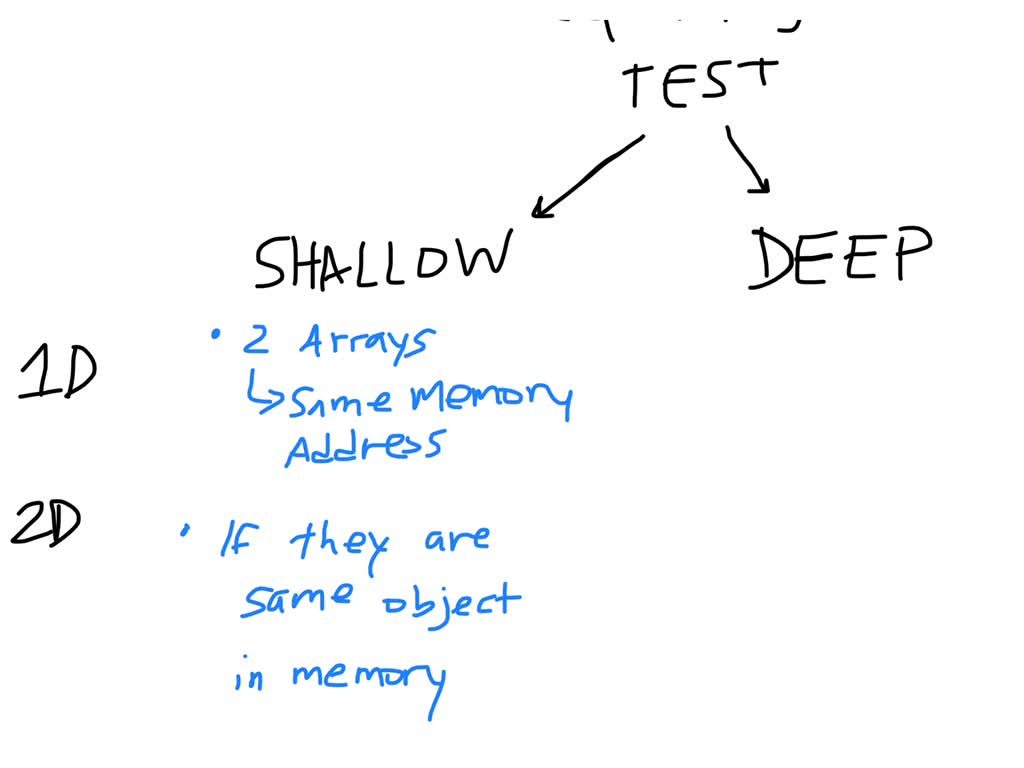 TEST
SHALLOW DEEP
1D
• 2 Arrays
↳ Same Memory
Address
2D
• If they are
same object
in memory